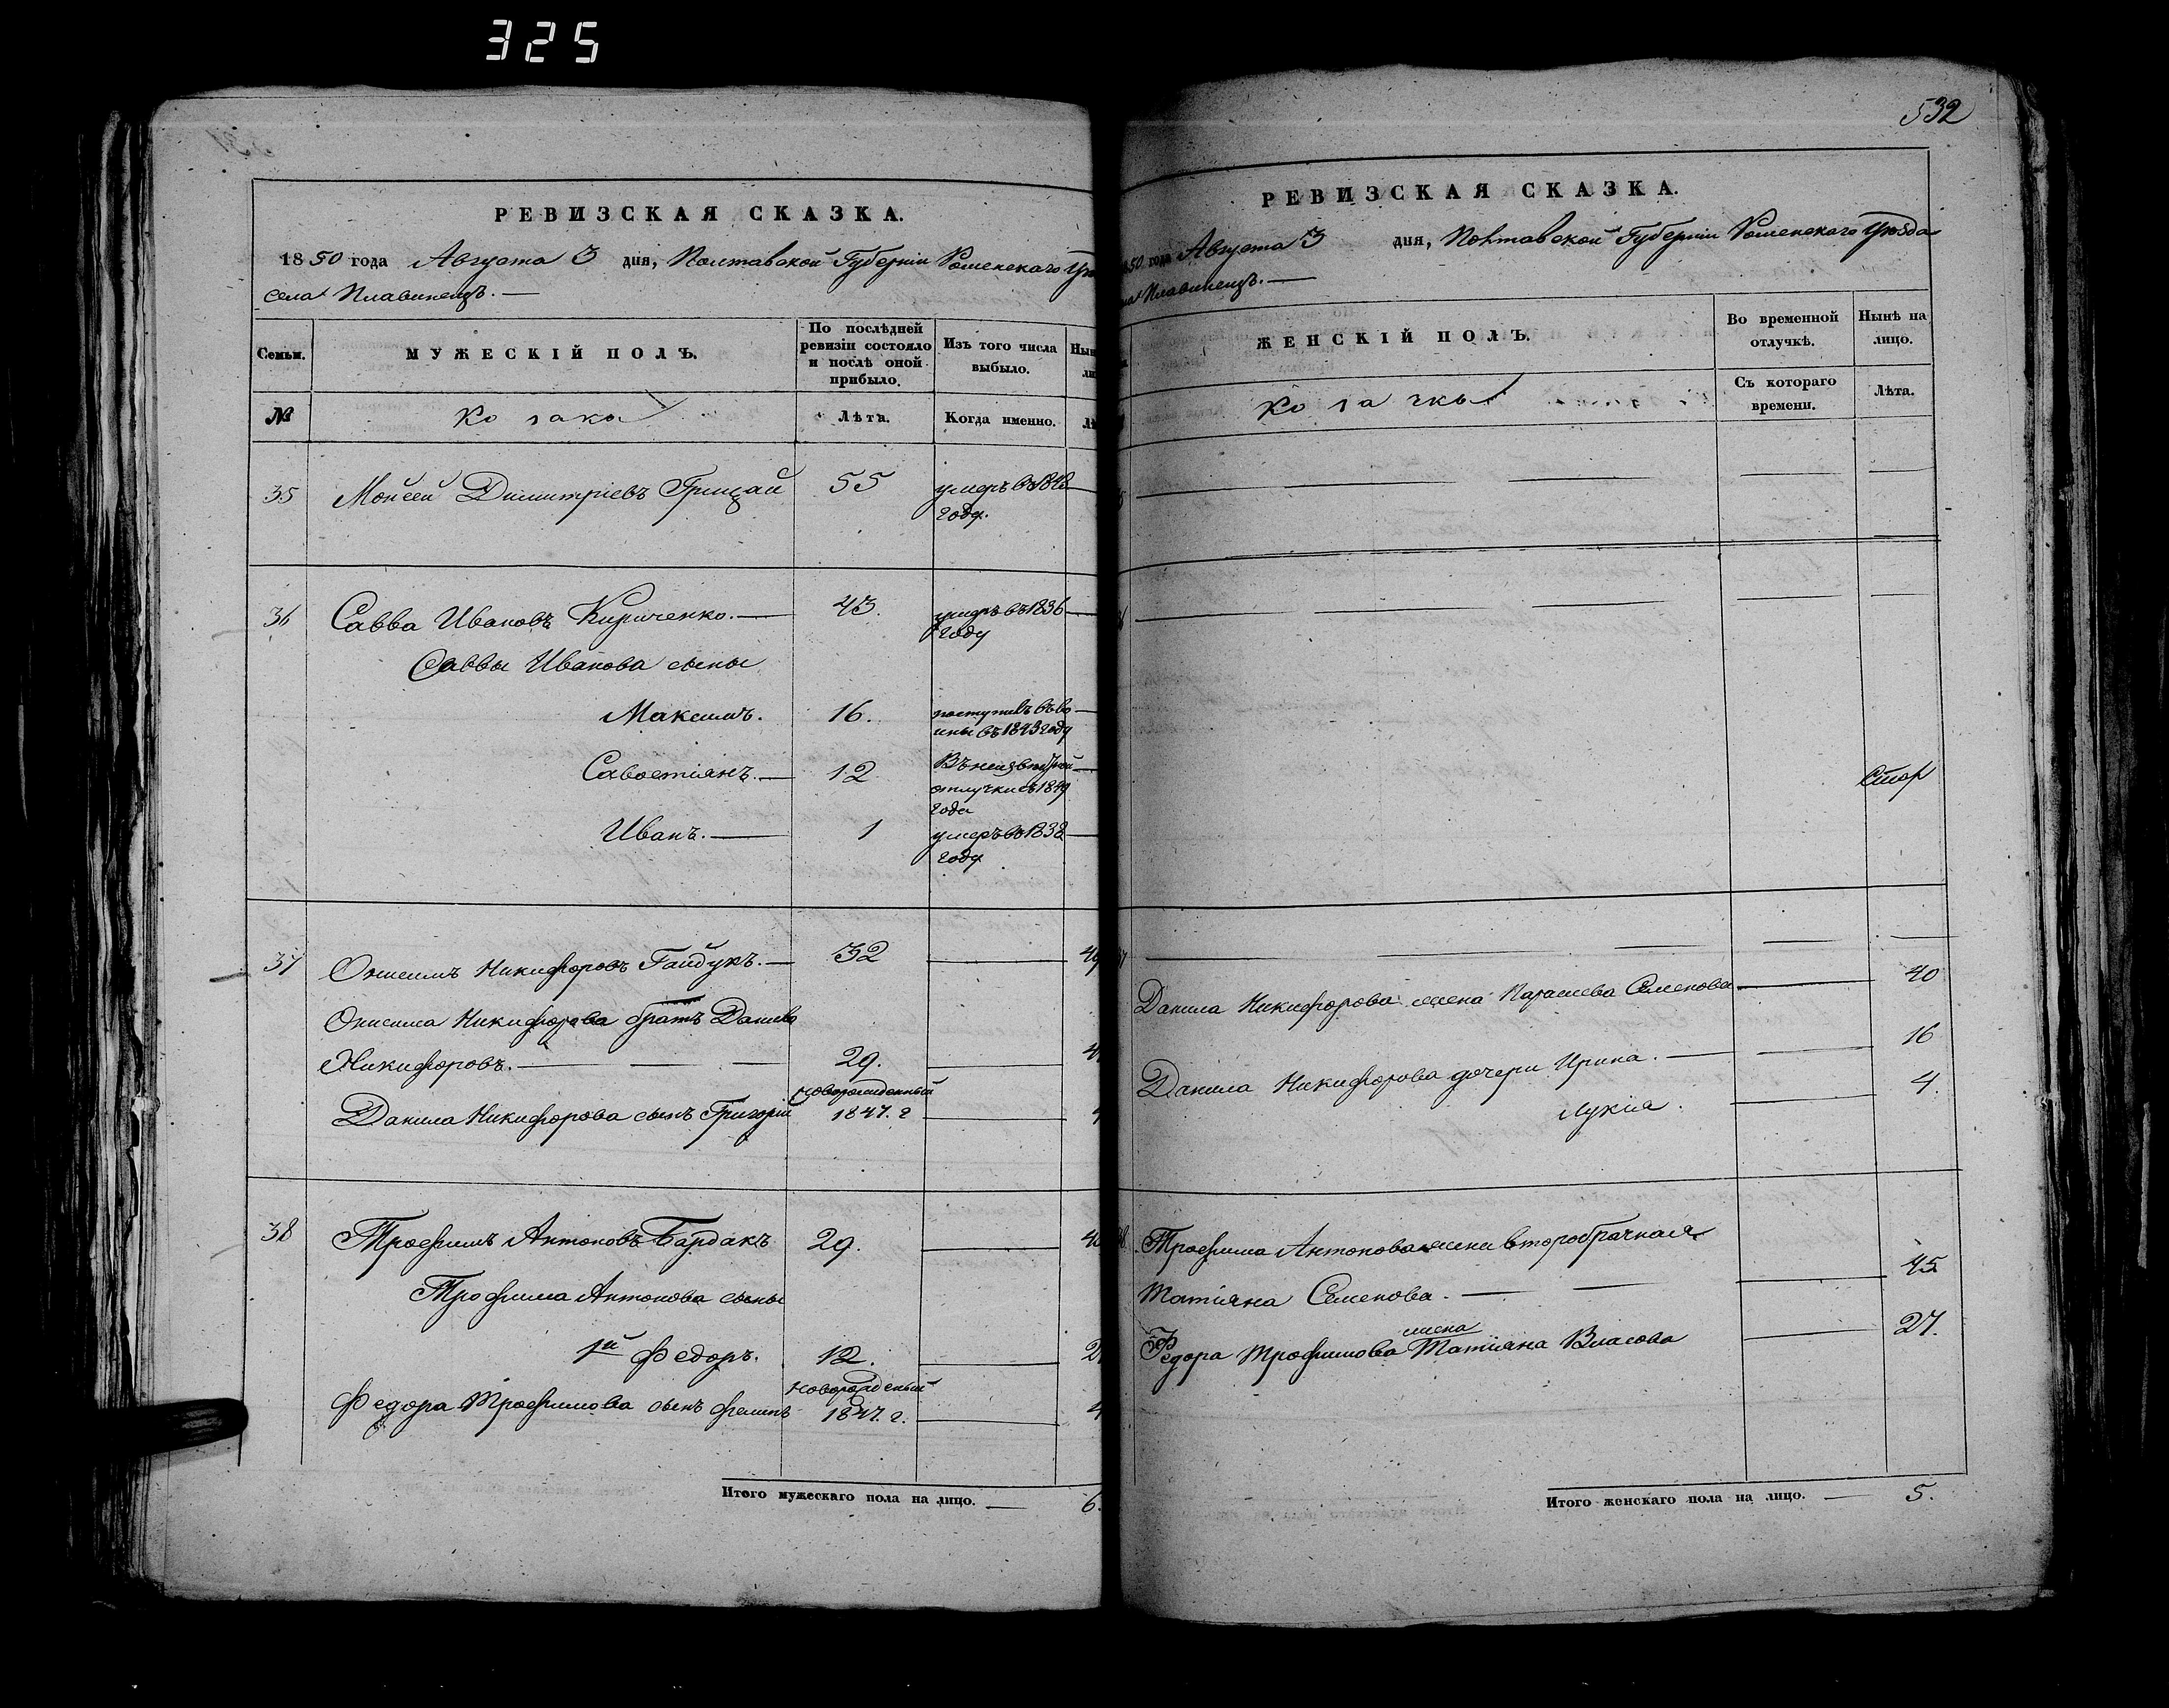 325
РЕВИЗСКАЯ СКАЗКА.
1850 года Августа 3 дня, Полтавской Губерніи Роменскаго
села Плавинещъ. —
Семьи. МУЖЕСКІЙ ПОЛЪ. По послѣдней ревизіи состояло и послѣ оной прибыло. Изъ того числа выбыло.
№ Козаки Лѣта. Когда именно.
35 Мойсей Димитріевъ Грицай 55 умеръ въ 1848
году.
36 Савва Ивановъ Кириченко. — 43. умеръ въ 1836
году
Саввы Иванова сыны
Максимъ. 16. поступилъ въ во
ины въ 1843 году
Савостіянъ. — 12 Въ неизвѣстной
отлучки съ 1849
года
Иванъ. — 1 умеръ въ 1838
году
37 Онисимъ Никифоровъ Гайдукъ. — 32
Онисима Никифорова братъ Данило
Никифоровъ. — 29.
новорожденный
Данила Никифорова сынъ Григорій 1847. г
38 Трофимъ Антоновъ Бардакъ 29.
Трофима Антонова сыны
1й Федоръ. 12.
новорожденый
Федора Трофимова сынъ 1847. г.
Итого мужескаго пола на лицо. — 6.
532
РЕВИЗСКАЯ СКАЗКА.
50 года Августа 3 дня, Полтавской Губерніи Роменскаго Уѣзда
Плавинещъ. —
ЖЕНСКІЙ ПОЛЪ. Во временной отлучкѣ. Нынѣ на лицо.
Козачки Съ котораго времени. Лѣта.
Данила Никифорова жена Параскева Семенова — 40
Данила Никифорова дочери Ирина. — 16
Лукія. — 4.
Трофима Антонова жена второбрачная
Татіяна Семенова. — 45
жена
Федора Трофимова Татіяна Власова — 27.
Итого женскаго пола на лицо. — 5.